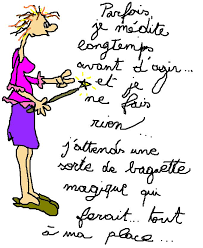 Parfois
je médite
longtemps
avant d'agir...
et je
ne fais
rien...
j'attends une
sorte de baguette
magique qui
ferait... tout
à ma place...